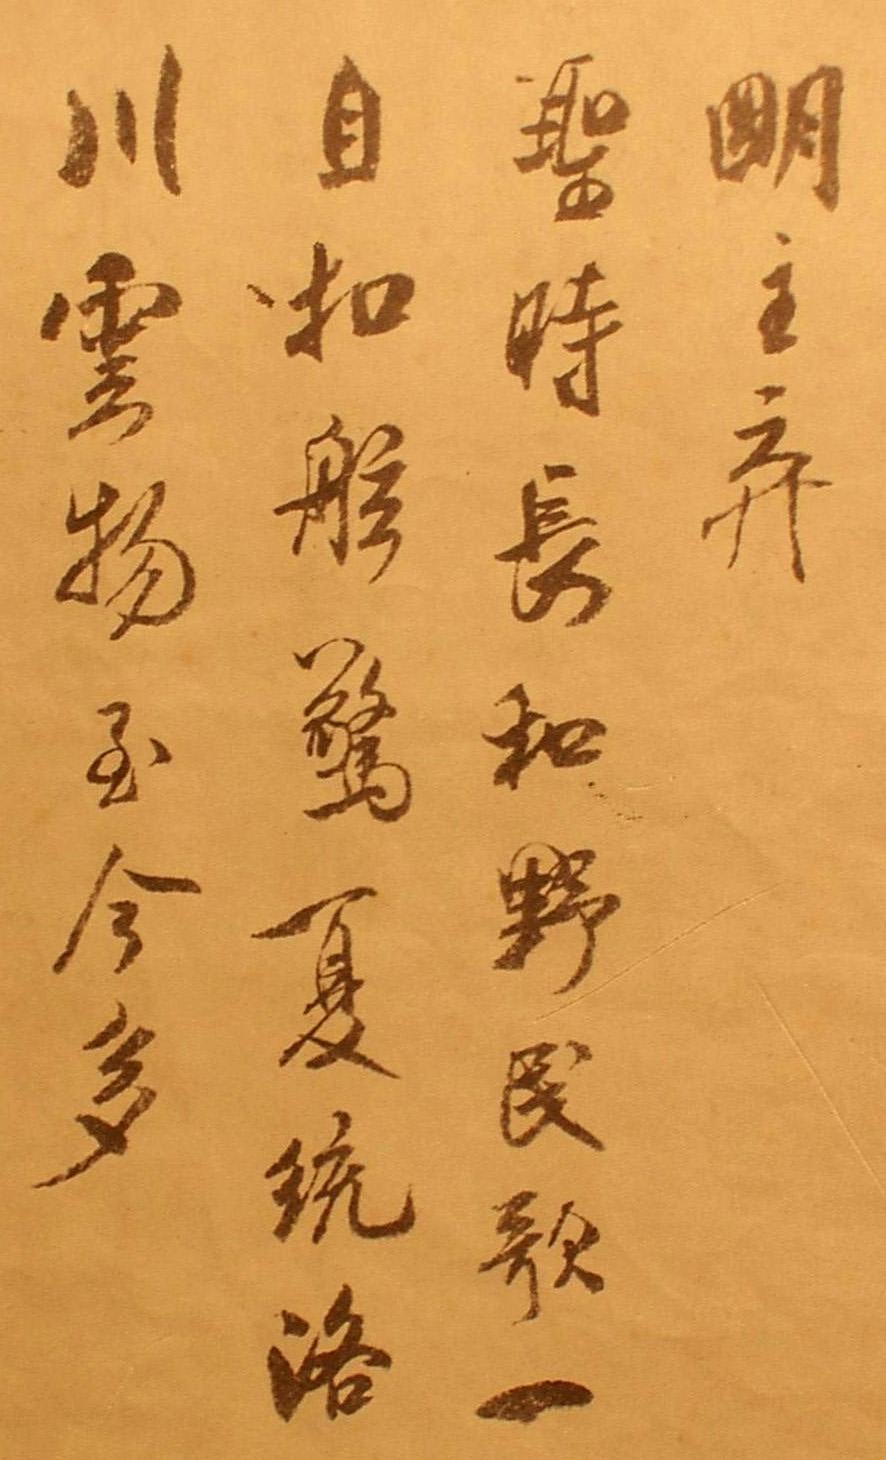 明主弃
聖時長和野民歌一
自扣舷驚夏統洛
川雲物至今多